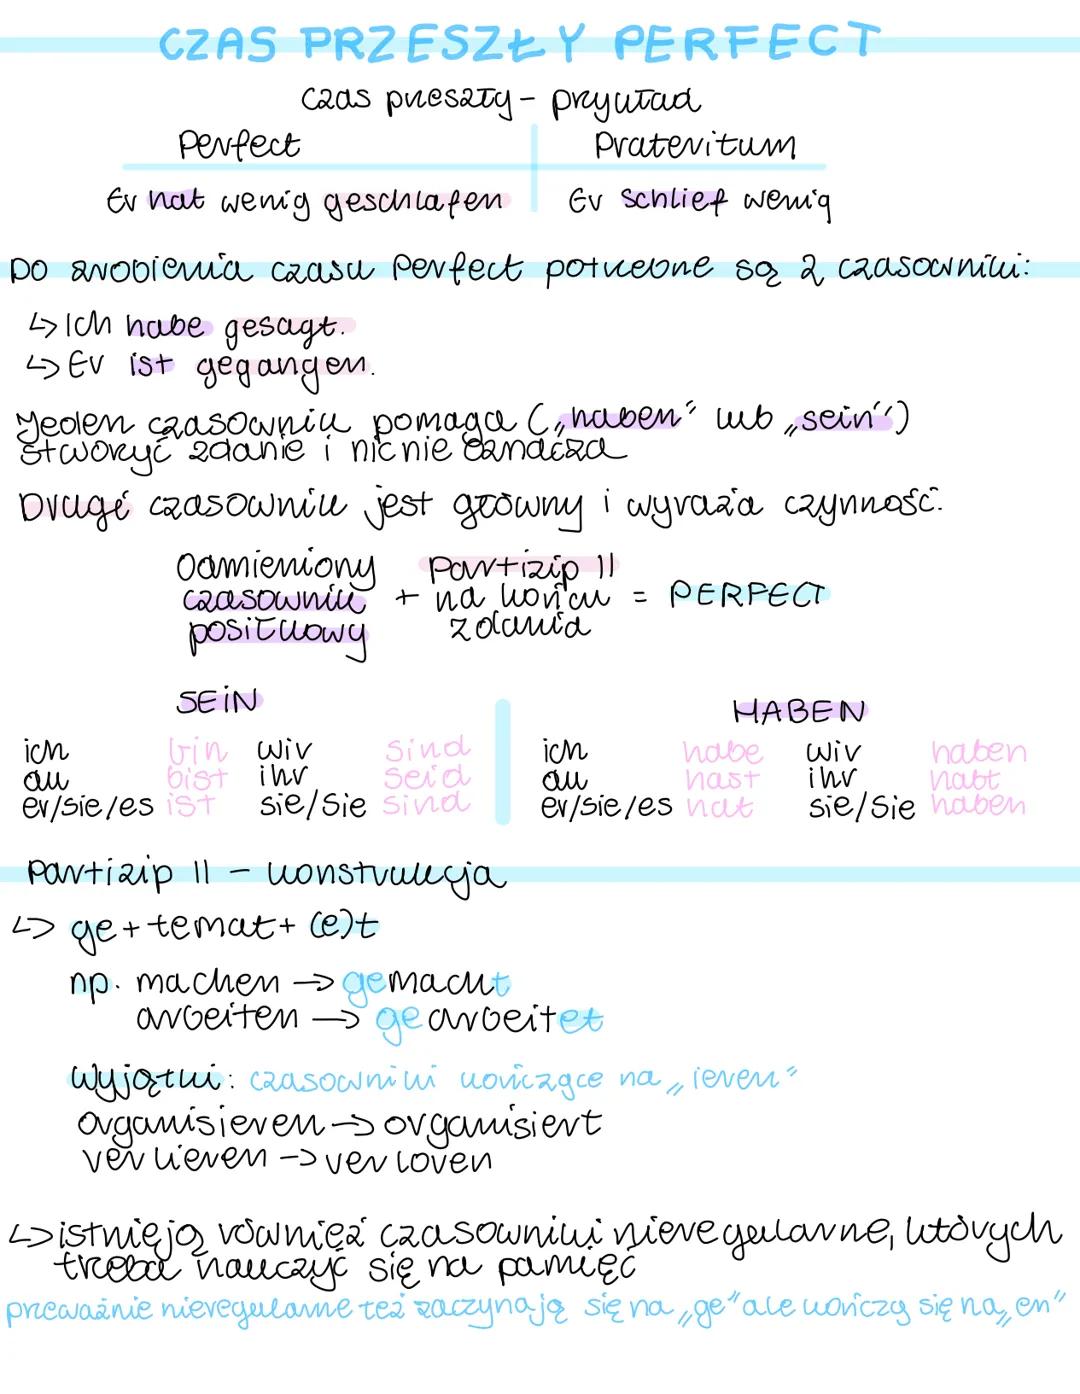 CZAS PRZESZŁY PERFECT
czas przeszły - przykład
Perfect Prateritum
Er hat wenig geschlafen Er schlief wenig
Do zrobienia czasu Perfect potrzebne są 2 czasowniki:
↳ Ich habe gesagt.
↳ Er ist gegangen.
Jeden czasownik pomaga („haben" lub „sein")
stworzyć zdanie i nic nie oznacza
Drugi czasownik jest główny i wyraża czynność.
Odmieniony Partizip II
czasownik + na końcu = PERFECT
posiłkowy zdania
SEIN HABEN
ich bin wir sind ich habe wir haben
du bist ihr seid du hast ihr habt
er/sie/es ist sie/Sie sind er/sie/es hat sie/Sie haben
Partizip II - konstrukcja
↳ ge + temat + (e)t
np. machen → gemacht
arbeiten → gearbeitet
Wyjątki: czasowniki kończące na „ieren"
organisieren → organisiert
verlieren → verloren
↳ istnieją również czasowniki nieregularne, których
trzeba nauczyć się na pamięć
przeważnie nieregularne też zaczynają się na „ge" ale kończą się na „en"